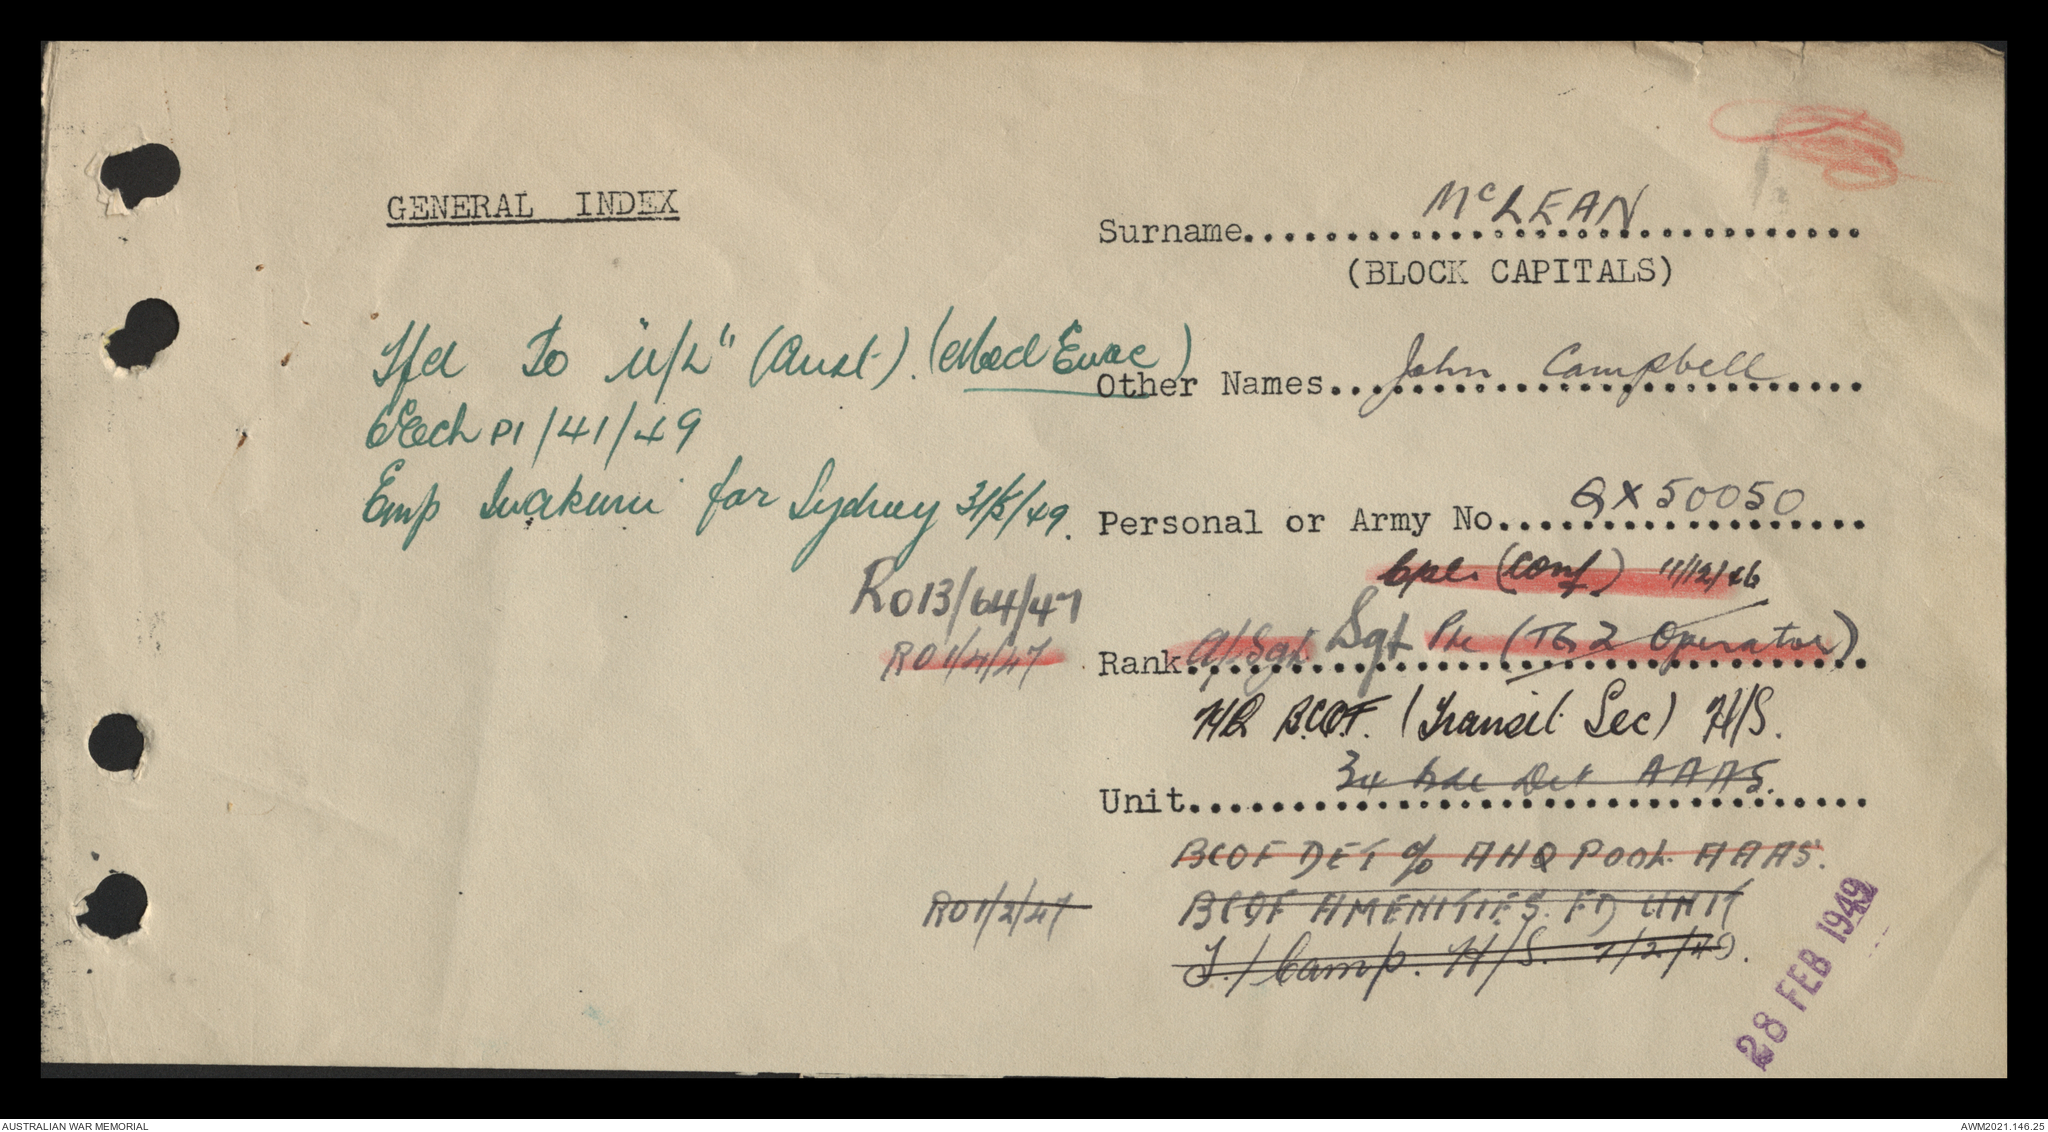 GENERAL INDEX
Surname McLEAN
(BLOCK CAPITALS)
Tfd to "U/L" (Aust). (Med Evac)
Other Names John Campbell
Elech P1/41/49
Emp Iwakuni for Sydney 31/5/49.
Personal or Army No. QX50050
Cpl. (Conf) 11/12/46
RO13/64/47
RO1/4/47
Rank A/Sgt Sgt Pte (TG 2 Operator)
HQ B.C.O.F. (Transit Sec) H/S.
Unit 34 Bde Det AAAS.
BCOF DET % AHQ POOL AAAS.
RO1/2/47
BCOF AMENITIES FD UNIT
T./Camp. H/S. 7/2/49.
28 FEB 1949
AUSTRALIAN WAR MEMORIAL
AWM2021.146.25